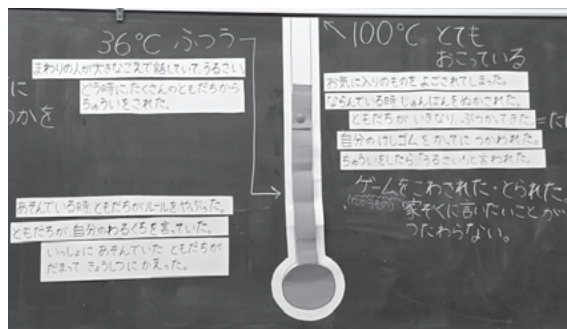 36℃ ふつう
まわりの人が大きなこえで話していて、うるさい。
どう時に、たくさんのともだちから
ちゅういをされた。
あそんでいる時、ともだちがルールをやぶった。
ともだちが、自分のわるくちを言っていた。
いっしょに あそんでいた ともだちが
だまって きょうしつに かえった。
に
のかを
100℃ とても
おこっている
お気に入りのものを よごされてしまった。
ならんでいる時 じゅんばんをぬかされた。
ともだちが いきなり ぶつかってきた。
自分のけしゴムを かってに つかわれた。
ちゅういをしたら、「うるさい!」と言われた。
ゲームを こわされた・とられた。
(たからもの)
家ぞくに言いたいこと が
つたわらない。